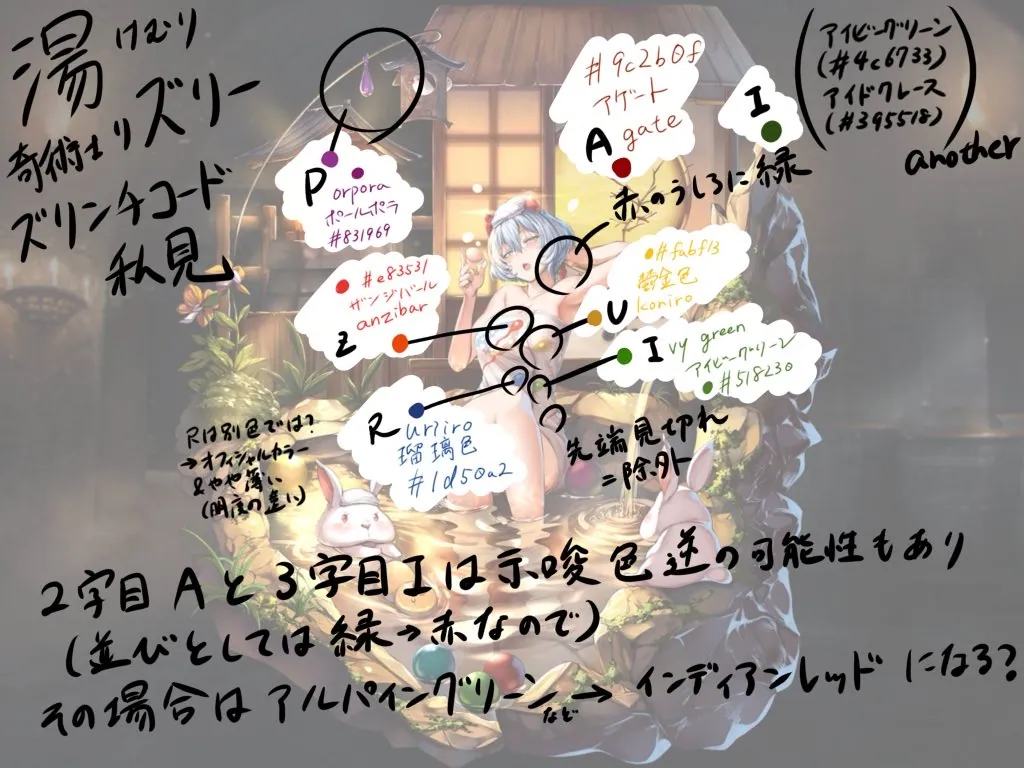 湯けむり
奇術士リズリー
ズリンチコード
私見
P
orpora
ポールポラ
#831969
#9c2b0f
アゲート
A gate
I
(アイビーグリーン
(#4c6733)
アイドクレース
(#395518))
another
赤のうしろに緑
#e83531
ザンジバール
anzibar
Z
#fabf13
鬱金色
U
koniro
I vy green
アイビーグリーン
#518230
R uriiro
瑠璃色
#1d50a2
Rは別色では?
→オフィシャルカラー
&やや薄い
(明度の違い)
先端見切れ
=除外
2字目Aと3字目Iは示唆色逆の可能性もあり
(並びとしては緑→赤なので)
その場合はアルパイングリーンなど→インディアンレッドになる?